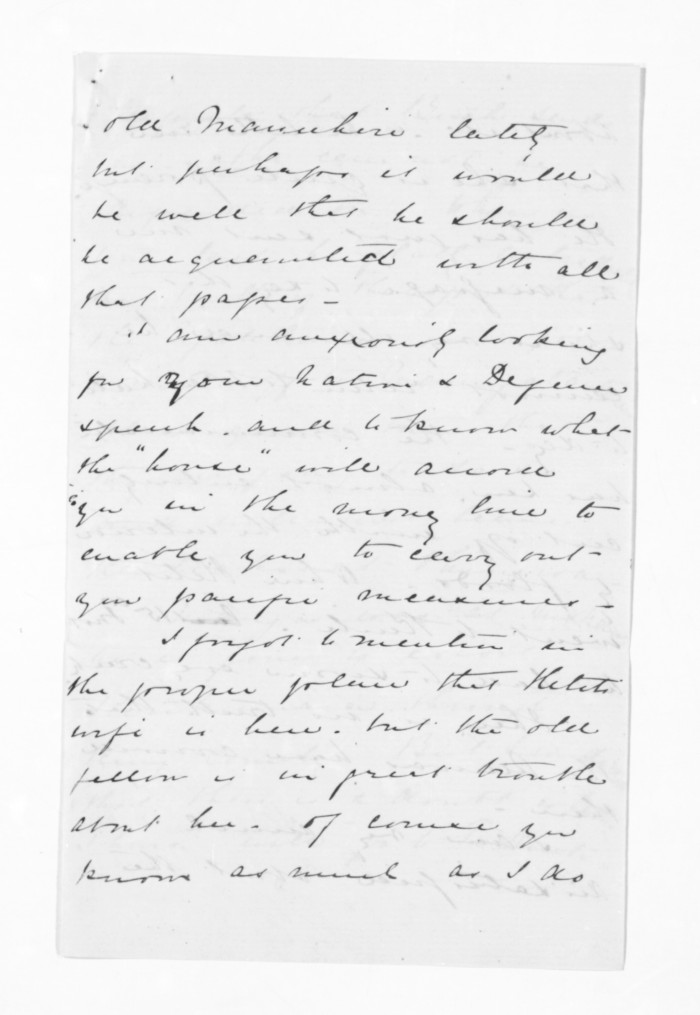 old Manuhiri lately
but perhaps it would
be well that he should
be acquainted with all
that passes -
I am anxiously looking
for your Native & Defence
speech. and to know what
the "house" will accord
you in the money line to
enable you to carry out
your pacific measures -
I forgot to mention in
the proper place that Hetets
wife is here. but the old
fellow is in great trouble
about her. of course you
know as much as I do